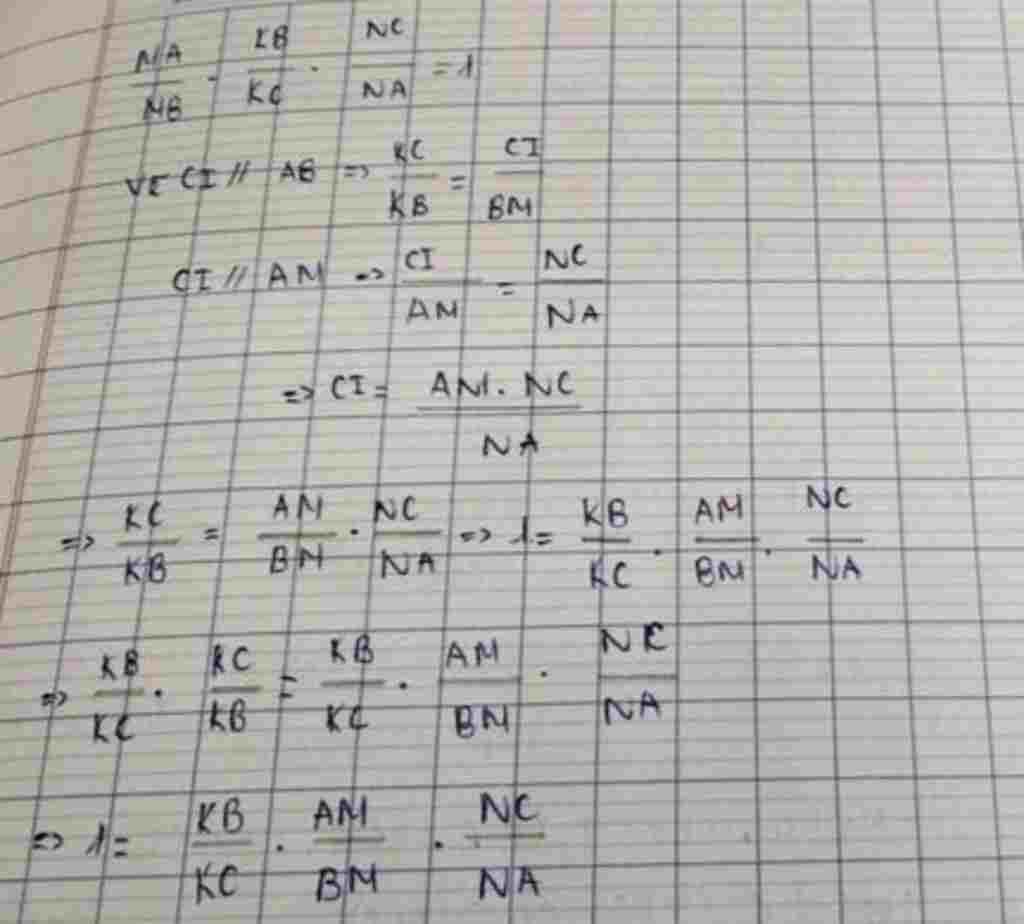 MA/MB . KB/KC . NC/NA = 1
VẼ CI // AB => KC/KB = CI/BM
CI // AM => CI/AM = NC/NA
=> CI = AM . NC / NA
=> KC/KB = AM/BM . NC/NA => 1 = KB/KC . AM/BM . NC/NA
=> KB/KC . KC/KB = KB/KC . AM/BM . NC/NA
=> 1 = KB/KC . AM/BM . NC/NA